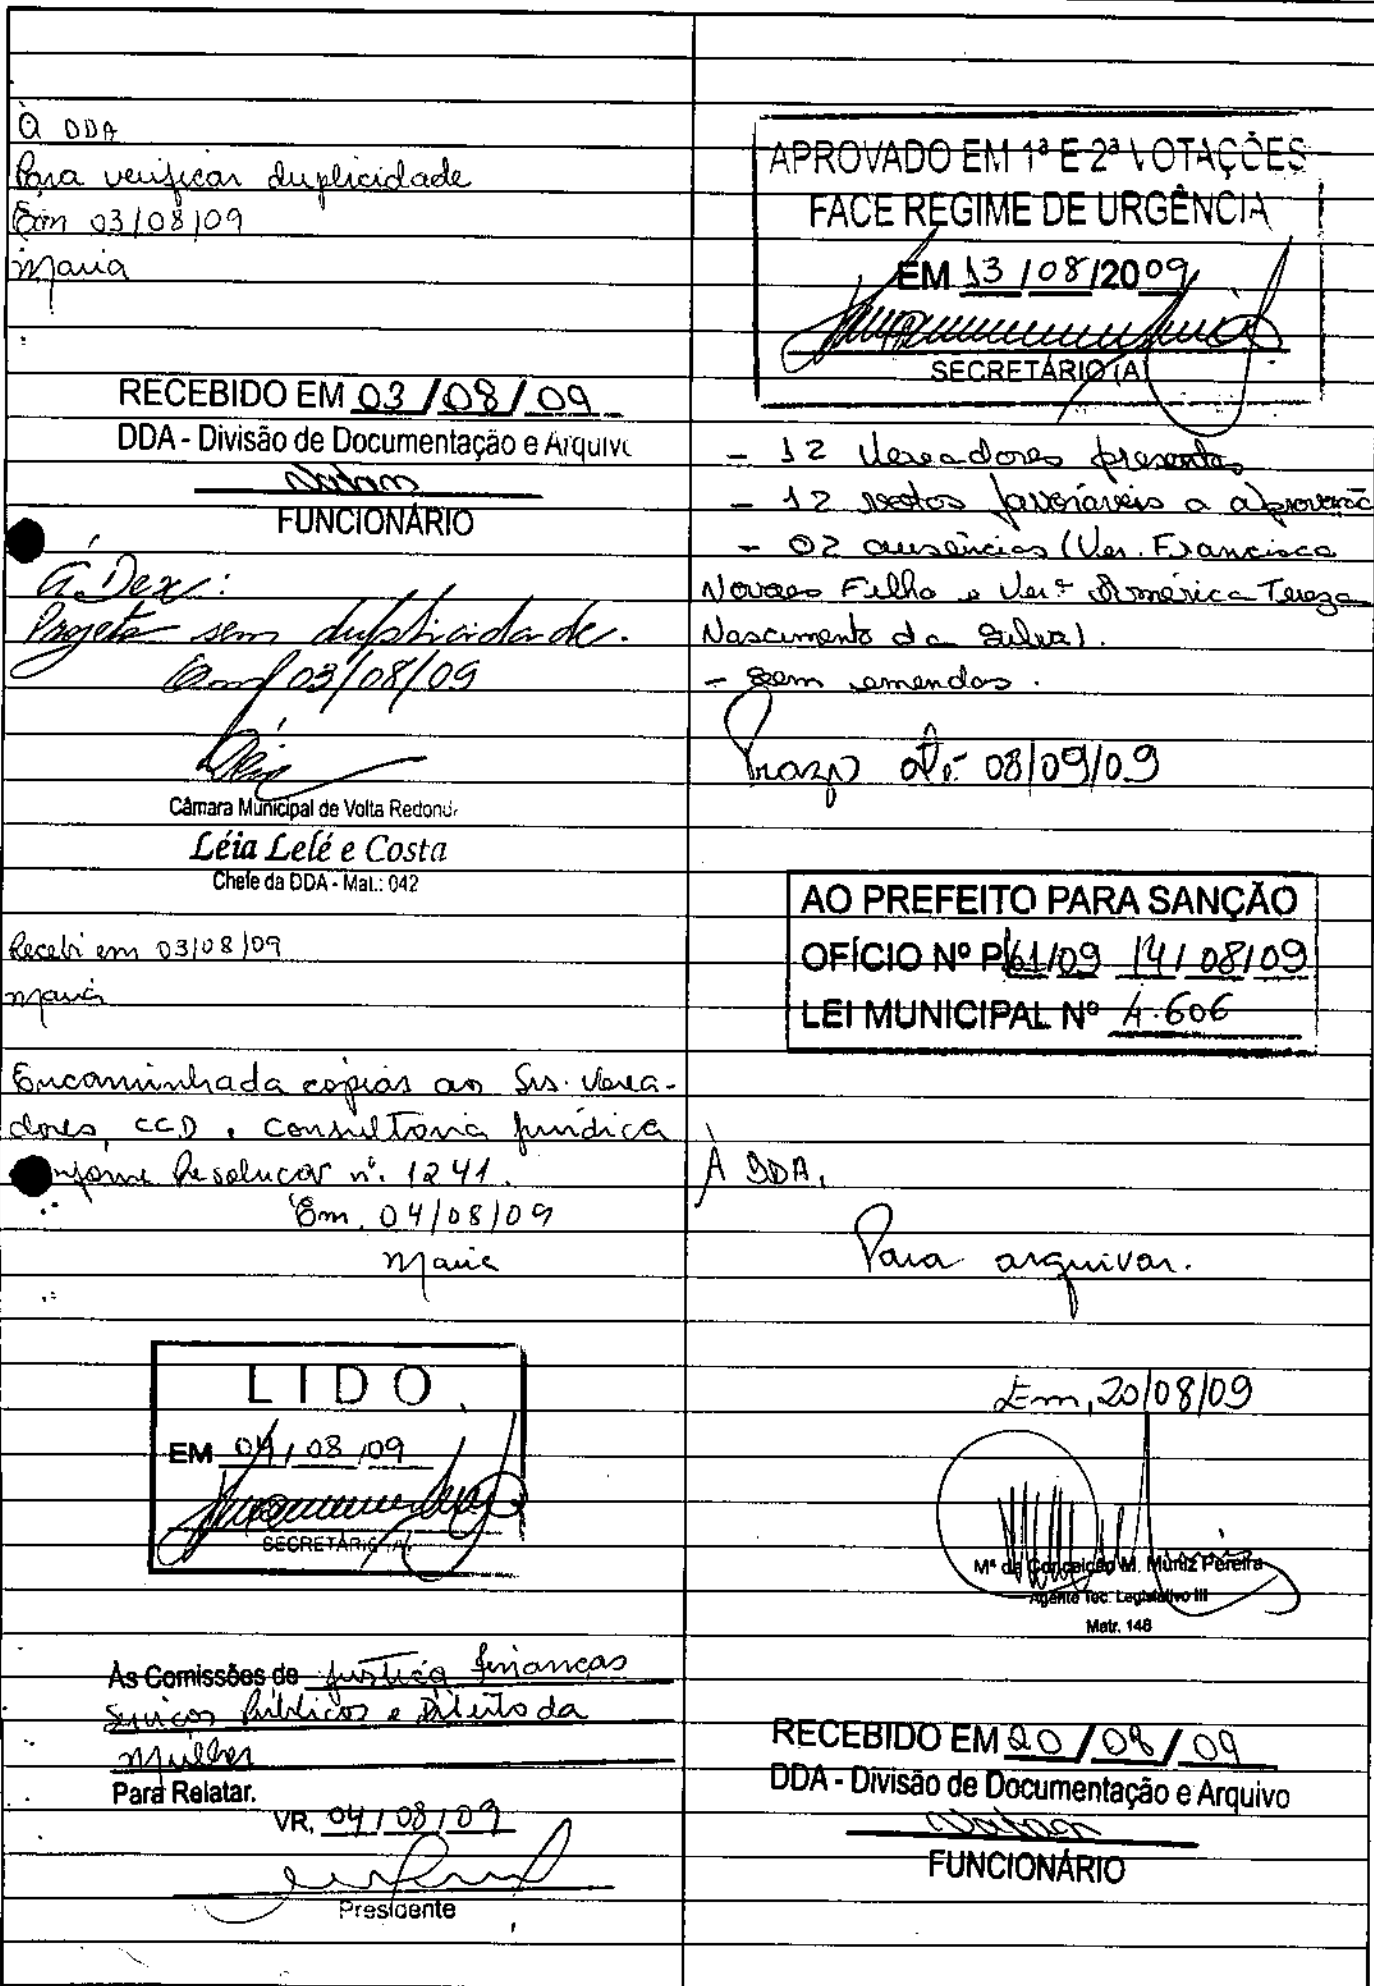 À DDA
Para verificar duplicidade
Em 03/08/09
Maria
RECEBIDO EM 03/08/09
DDA - Divisão de Documentação e Arquivo
FUNCIONÁRIO
À Dex:
Projeto sem duplicidade.
Em 03/08/09
Câmara Municipal de Volta Redonda
Léia Lelé e Costa
Chefe da DDA - Mat.: 042
Recebi em 03/08/09
Maria
Encaminhada cópias ao Srs. Verea-
dores, CCD e Consultoria Jurídica
conforme Resolucar nº. 1241.
Em, 04/08/09
Maria
LIDO
EM 04/08/09
SECRETÁRIO (A)
As Comissões de Justiça Finanças
Serviços Públicos e Direito da
Mulher
Para Relatar.
VR, 04/08/09
Presidente
APROVADO EM 1ª E 2ª VOTAÇÕES
FACE REGIME DE URGÊNCIA
EM 13/08/2009
SECRETÁRIO (A)
- 12 Vereadores presentes
- 12 votos favoráveis a aprovação
- 02 ausências (Ver. Francisco
Novaes Filho e Ver.ª América Tereza
Nascimento da Silva).
- Sem emendas.
Prazo Até: 08/09/09
AO PREFEITO PARA SANÇÃO
OFÍCIO Nº P/61/09 14/08/09
LEI MUNICIPAL Nº 4.606
À DDA,
Para arquivar.
Em, 20/08/09
Mª da Conceição M. Muniz Pereira
Agente Tec. Legislativo III
Matr. 148
RECEBIDO EM 20/08/09
DDA - Divisão de Documentação e Arquivo
FUNCIONÁRIO